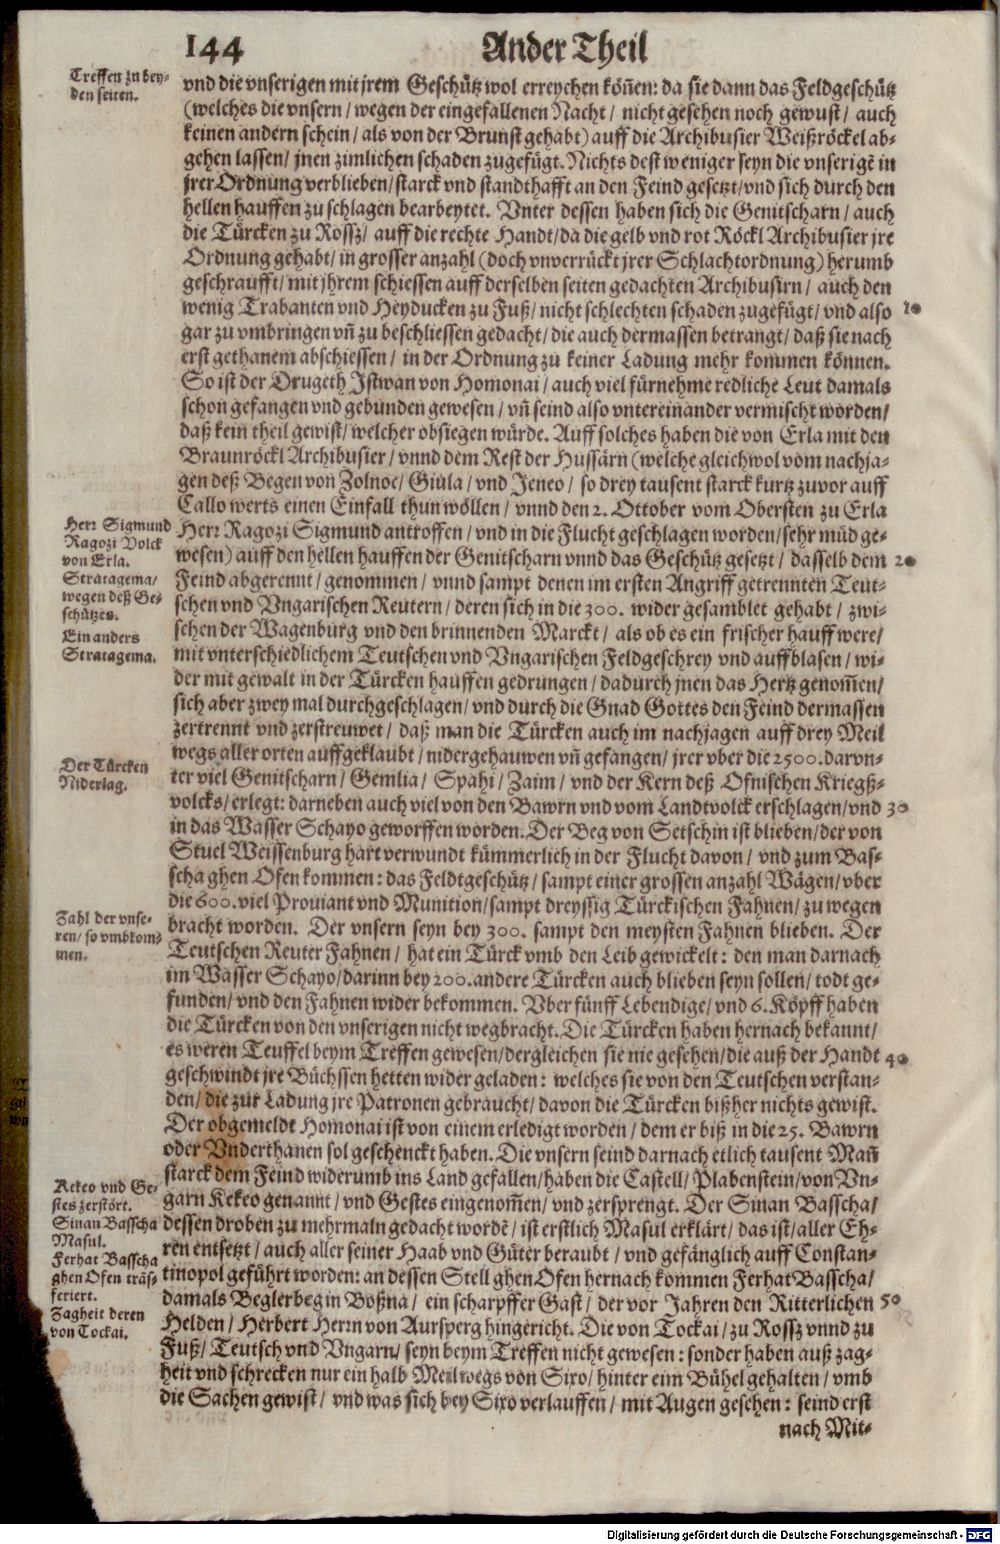 144 Ander Theil
Treffen zu bey-
den seiten.
vnd die vnserigen mit jrem Geschütz wol erreychen köñen: da sie dann das Feldgeschütz
(welches die vnsern/ wegen der eingefallenen Nacht/ nicht gesehen noch gewust/ auch
keinen andern schein/ als von der Brunst gehabt) auff die Archibusier Weißröckel ab-
gehen lassen/ jnen zimlichen schaden zugefügt. Nichts dest weniger seyn die vnserigē in
jrer Ordnung verblieben/ starck vnd standthafft an den Feind gesetzt/ vnd sich durch den
hellen hauffen zu schlagen bearbeytet. Vnter dessen haben sich die Genitscharn/ auch
die Türcken zu Rossz/ auff die rechte Handt/ da die gelb vnd rot Röckl Archibusier jre
Ordnung gehabt/ in grosser anzahl (doch vnverrückt jrer Schlachtordnung) herumb
geschraufft/ mit jhrem schiessen auff derselben seiten gedachten Archibusirn/ auch den
wenig Trabanten vnd Heyducken zu Fuß/ nicht schlechten schaden zugefügt/ vnd also 10
gar zu vmbringen vñ zu beschliessen gedacht/ die auch dermassen betrangt/ daß sie nach
erst gethanem abschiessen/ in der Ordnung zu keiner Ladung mehr kommen können.
So ist der Drugeth Istwan von Homonai/ auch viel fürnehme redliche Leut damals
schon gefangen vnd gebunden gewesen/ vñ seind also vntereinander vermischt worden/
daß kein theil gewist/ welcher obsiegen würde. Auff solches haben die von Erla mit den
Braunröckl Archibusier/ vnnd dem Rest der Hussärn (welche gleichwol vom nachja-
gen deß Begen von Zolnoc/ Giula/ vnd Jeneo/ so drey tausent starck kurtz zuvor auff
Callo werts einen Einfall thun wöllen/ vnnd den 2. Ottober vom Obersten zu Erla
Herr Sigmund
Ragozi Volck
von Erla.
Stratagema/
wegen deß Ge-
schützes.
Ein anders
Stratagema.
Herr Ragozi Sigmund antroffen/ vnd in die Flucht geschlagen worden/ sehr müd ge-
wesen) auff den hellen hauffen der Genitscharn vnnd das Geschütz gesetzt/ dasselb dem 20
Feind abgerennt/ genommen/ vnnd sampt denen im ersten Angriff getrennten Teut-
schen vnd Vngarischen Reutern/ deren sich in die 300. wider gesamblet gehabt/ zwi-
schen der Wagenburg vnd den brinnenden Marckt/ als ob es ein frischer hauff were/
mit vnterschiedlichem Teutschen vnd Vngarischen Feldgeschrey vnd auffblasen/ wi-
der mit gewalt in der Türcken hauffen gedrungen/ dadurch jnen das Hertz genom̄en/
sich aber zwey mal durchgeschlagen/ vnd durch die Gnad Gottes den Feind dermassen
zertrennt vnd zerstreuwet/ daß man die Türcken auch im nachjagen auff drey Meil
wegs aller orten auffgeklaubt/ nidergehauwen vñ gefangen/ jrer vber die 2500. darvn-
Der Türcken
Niderlag.
ter viel Genitscharn/ Gemlia/ Spahi/ Zaim/ vnd der Kern deß Ofnischen Kriegß-
volcks/ erlegt: darneben auch viel von den Bawrn vnd vom Landtvolck erschlagen/ vnd 30
in das Wasser Schayo geworffen worden. Der Beg von Setschin ist blieben/ der von
Stuel Weissenburg hart verwundt kümmerlich in der Flucht davon/ vnd zum Bas-
scha ghen Ofen kommen: das Feldtgeschütz/ sampt einer grossen anzahl Wägen/ vber
die 600. viel Prouiant vnd Munition/ sampt dreyssig Türckischen Fahnen/ zu wegen
Zahl der vnse-
ren/ so vmbkom-
men.
bracht worden. Der vnsern seyn bey 300. sampt den meysten Fahnen blieben. Der
Teutschen Reuter Fahnen/ hat ein Türck vmb den Leib gewickelt: den man darnach
im Wasser Schayo/ darinn bey 200. andere Türcken auch blieben seyn sollen/ todt ge-
funden/ vnd den Fahnen wider bekommen. Vber fünff Lebendige/ vnd 6. Köpff haben
die Türcken von den vnserigen nicht wegbracht. Die Türcken haben hernach bekannt/
es weren Teuffel beym Treffen gewesen/ dergleichen sie nie gesehen/ die auß der Handt 40
geschwindt jre Büchssen hetten wider geladen: welches sie von den Teutschen verstan-
den/ die zur Ladung jre Patronen gebraucht/ davon die Türcken bißher nichts gewist.
Der obgemeldt Homonai ist von einem erledigt worden/ dem er biß in die 25. Bawrn
oder Vnderthanen sol geschenckt haben. Die vnsern seind darnach etlich tausent Mañ
starck dem Feind widerumb ins Land gefallen/ haben die Castell/ Plabenstein/ von Vn-
Kekeo vnd Ge-
stes zerstört.
Sinan Basscha
Masul.
Ferhat Basscha
ghen Ofen träs-
feriert.
Zagheit deren
von Tockai.
garn Kekeo genannt/ vnd Gestes eingenom̄en/ vnd zersprengt. Der Sinan Basscha/
dessen droben zu mehrmaln gedacht wordē/ ist erstlich Masul erklärt/ das ist/ aller Eh-
ren entsetzt/ auch aller seiner Haab vnd Güter beraubt/ vnd gefänglich auff Constan-
tinopol geführt worden: an dessen Stell ghen Ofen hernach kommen Ferhat Basscha/
damals Beglerbeg in Boßna/ ein scharpffer Gast/ der vor Jahren den Ritterlichen 50
Helden/ Herbert Herrn von Aursperg hingericht. Die von Tockai/ zu Rossz vnnd zu
Fuß/ Teutsch vnd Vngarn/ seyn beym Treffen nicht gewesen: sonder haben auß zag-
heit vnd schrecken nur ein halb Meil wegs von Sixo/ hinter eim Bühel gehalten/ vmb
die Sachen gewist/ vnd was sich bey Sixo verlauffen/ mit Augen gesehen: seind erst
nach Mit-
Digitalisierung gefördert durch die Deutsche Forschungsgemeinschaft - DFG